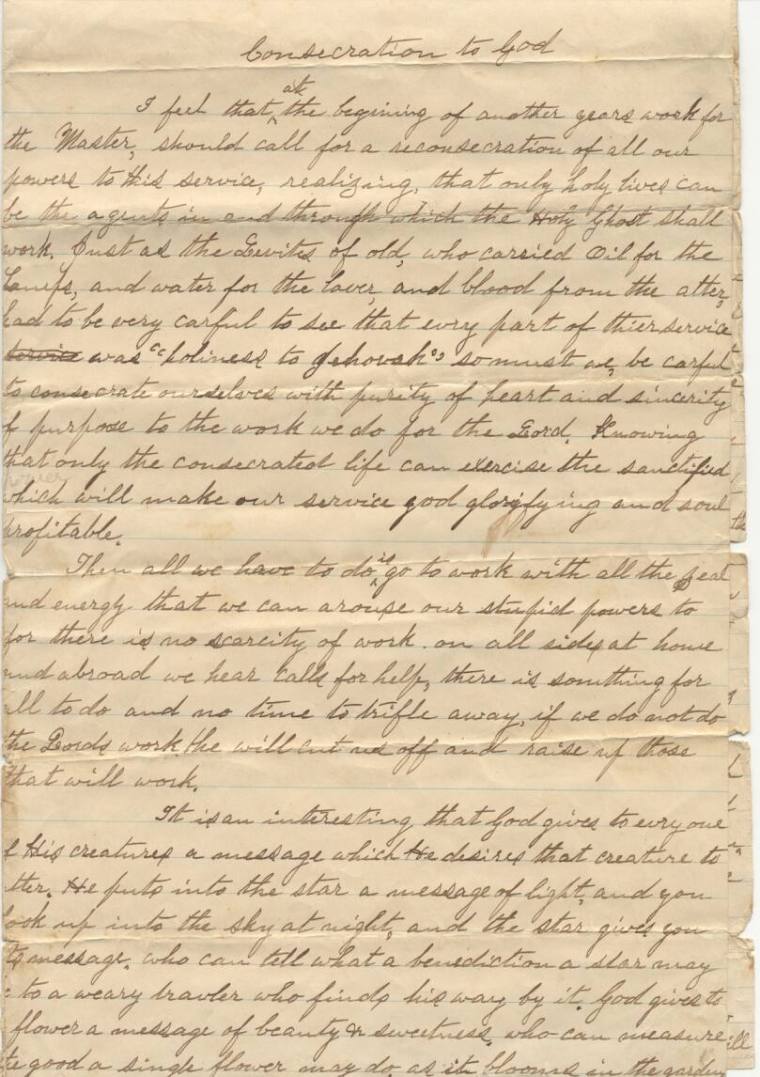 Consecration to God
at
I feel that, the begining of another years work for
the Master, should call for a reconsecration of all our
powers to His service, realizing, that only holy lives can
be the agents in and through which the Holy Ghost shall
work. Just as the Levites of old, who carried Oil for the
Lamps, and water for the laver, and blood from the alter,
had to be very carful to see that evry part of thier service
service was "holiness to Jehovah" so must we, be carful
to consecrate ourselves with purity of heart and sincerity
of purpose to the work we do for the Lord. Knowing
that only the consecrated life can exercise the sanctified
power
which will make our service god glorifying and soul
profitable.
Then all we have to do is go to work with all the zeal
and energy that we can arouse our stupid powers to
for there is no scarcity of work. on all sides at home
and abroad we hear calls for help, there is somthing for
all to do and no time to trifle away, if we do not do
the Lords work. he will cut us off and raise up those
that will work.
It is an interesting that God gives to evry one
of His creatures a message which He desires that creature to
utter. He puts into the star a message of light, and you
look up into the sky at night, and the star gives you
its message. who can tell what a benediction a star may
be to a weary travler who finds his way by it. God gives to
flower a message of beauty & sweetness. who can measure
the good a single flower may do. as it blooms in the garden